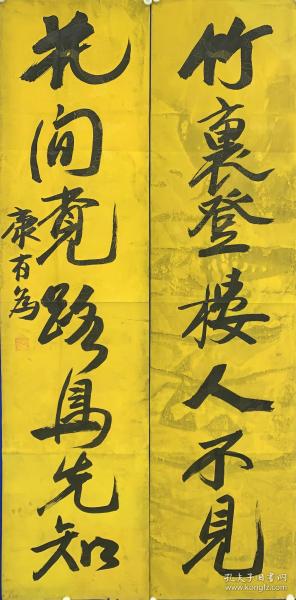 竹裏登樓人不見
花間覓路鳥先知
康有為
孔夫子旧书网
www.kongfz.com